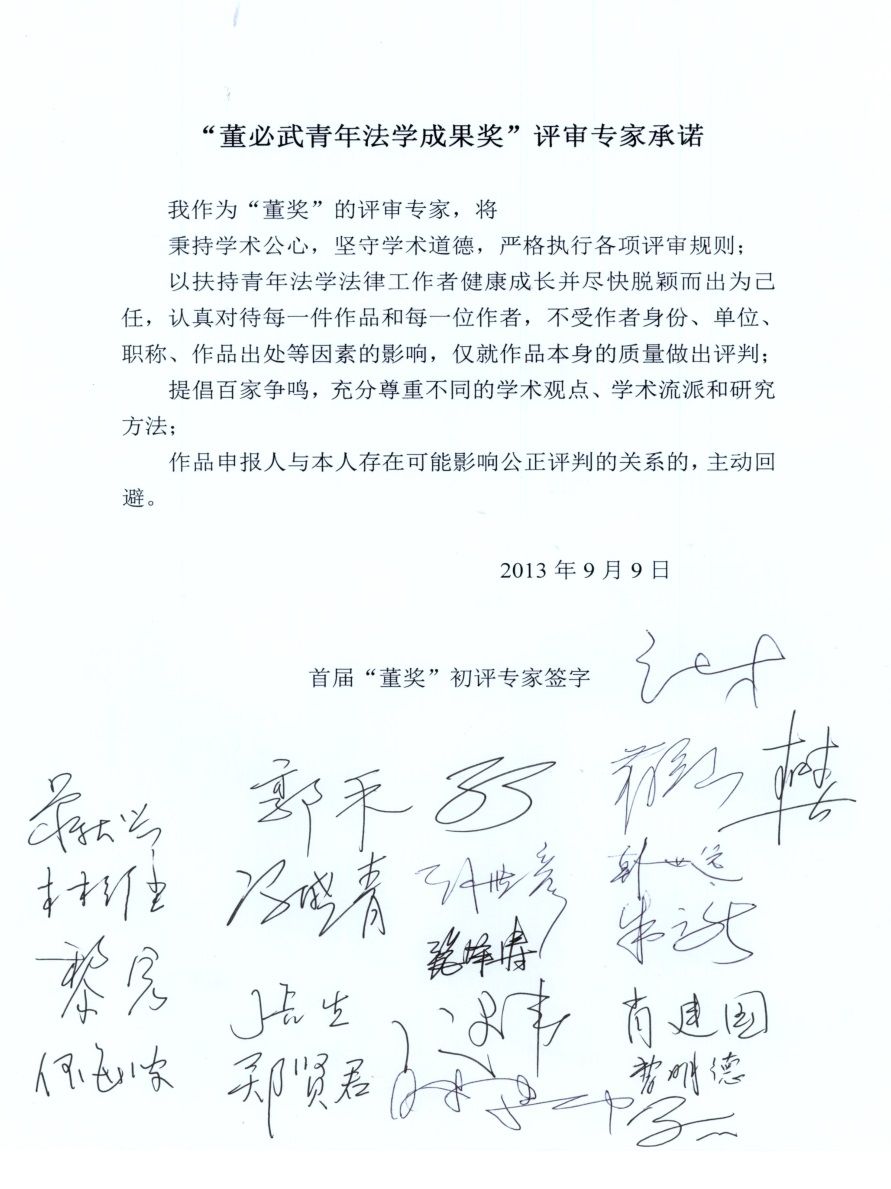 “董必武青年法学成果奖”评审专家承诺
我作为“董奖”的评审专家，将
秉持学术公心，坚守学术道德，严格执行各项评审规则；
以扶持青年法学法律工作者健康成长并尽快脱颖而出为己
任，认真对待每一件作品和每一位作者，不受作者身份、单位、
职称、作品出处等因素的影响，仅就作品本身的质量做出评判；
提倡百家争鸣，充分尊重不同的学术观点、学术流派和研究
方法；
作品申报人与本人存在可能影响公正评判的关系的，主动回
避。
2013 年 9 月 9 日
首届“董奖”初评专家签字
林维
冯晓青
韩世远
黎宏
肖建国
郑贤君
曹明德